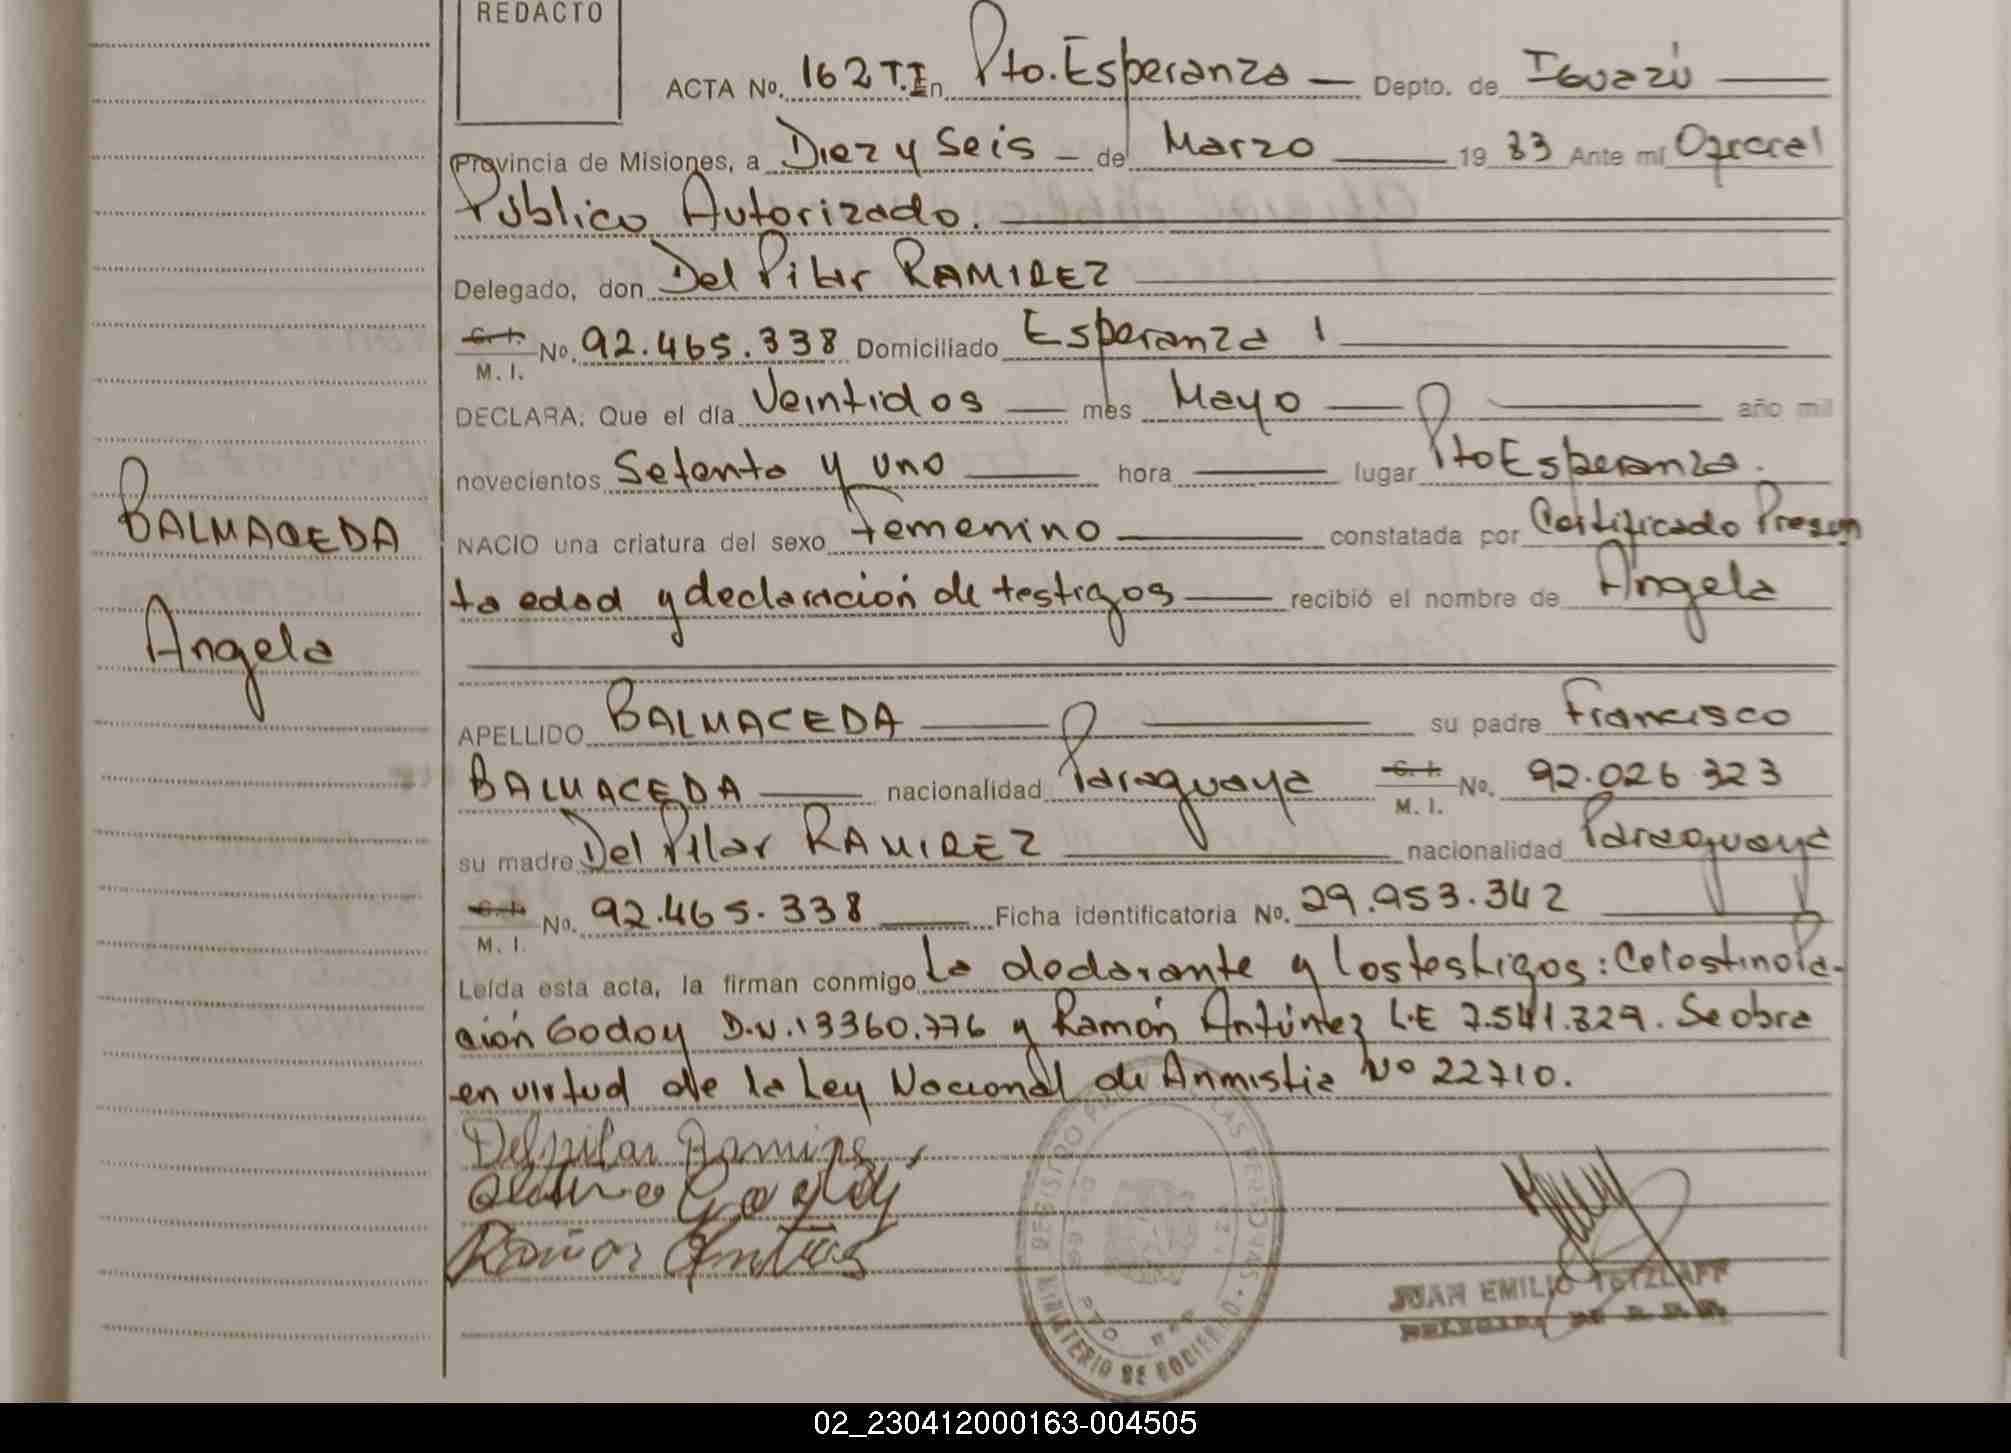 REDACTO
ACTA No. 162 T.I En Pto. Esperanza Depto. de Iguazú
Provincia de Misiones, a Diez y Seis de Marzo 1983 Ante mí Oficial
Público Autorizado.
Delegado, don Del Pilar RAMIREZ
C. I.
M. I.
No. 92.465.338 Domiciliado Esperanza 1
DECLARA: Que el día Veintidos mes Mayo año mil
novecientos Setenta y uno hora lugar Pto Esperanza.
NACIO una criatura del sexo femenino constatada por Certificado Presun
ta edad y declaración de testigos recibió el nombre de Angela
BALMACEDA
Angela
APELLIDO BALMACEDA su padre Francisco
BALMACEDA nacionalidad Paraguaya C. I. M. I. No. 92.026.323
su madre Del Pilar RAMIREZ nacionalidad Paraguaya
C. I. M. I. No. 92.465.338 Ficha identificatoria No. 29.953.342
Leída esta acta, la firman conmigo la declarante y los testigos: Celestino
Godoy D.N.I 3360.776 y Ramón Antúnez L.E 7.541.329. Se obra
en virtud de la Ley Nacional de Anmistia No 22710.
Del pilar Ramires
Godoy
Ramon
REGISTRO LAS PERSONAS
MINISTERIO DE GOBIERNO
PTO ESP
JUAN EMILIO TETZLAFF
DELEGADO DE
02_230412000163-004505